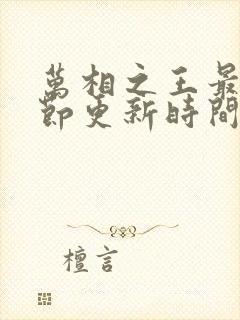 萬相之王最
節更新時間
檀言